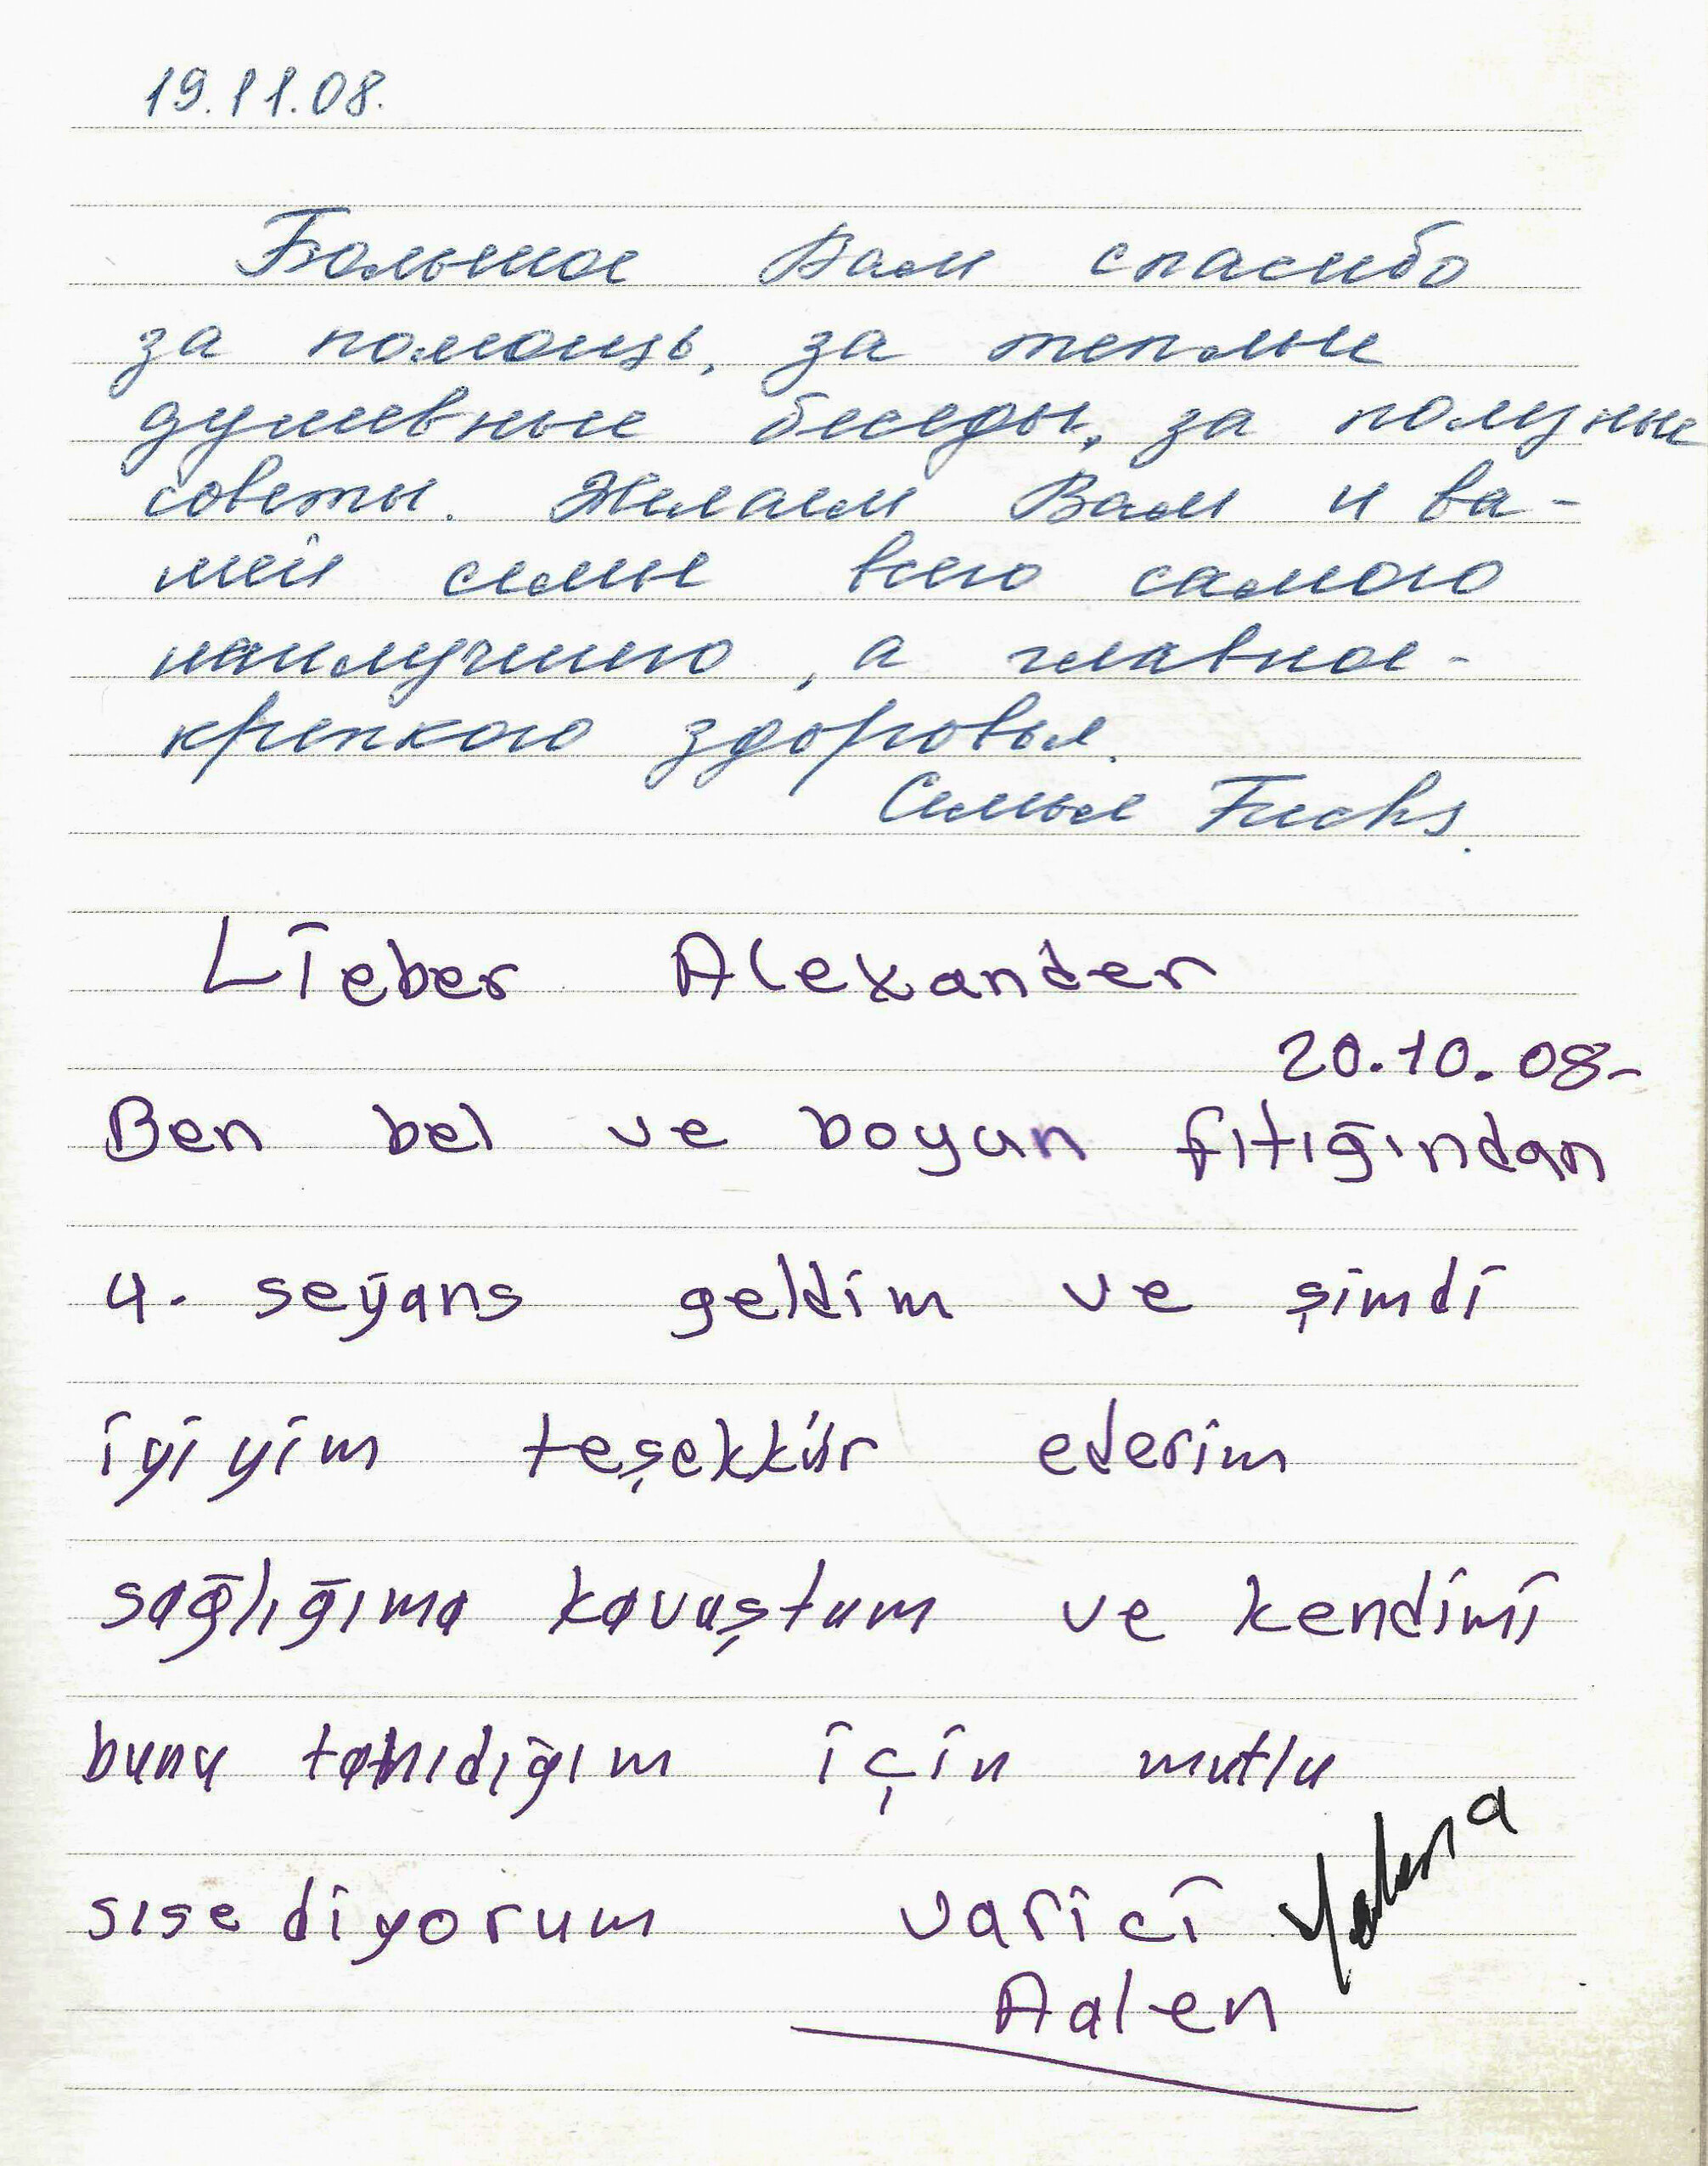 19.11.08.
Большое Вам спасибо
за помощь, за теплые
душевные беседы, за полезные
советы. Желаем Вам и ва-
шей семье всего самого
наилучшего, а главное -
крепкого здоровья.
Семья Fuchs.
Lieber Alexander
20.10.08-
Ben bel ve boyun fıtığından
4. seyans geldim ve şimdi
iyi yim teşekkür ederim
sağlığıma kavuştum ve kendimi
bunu tanıdığım için mutlu
sıse diyorum varici
Aalen